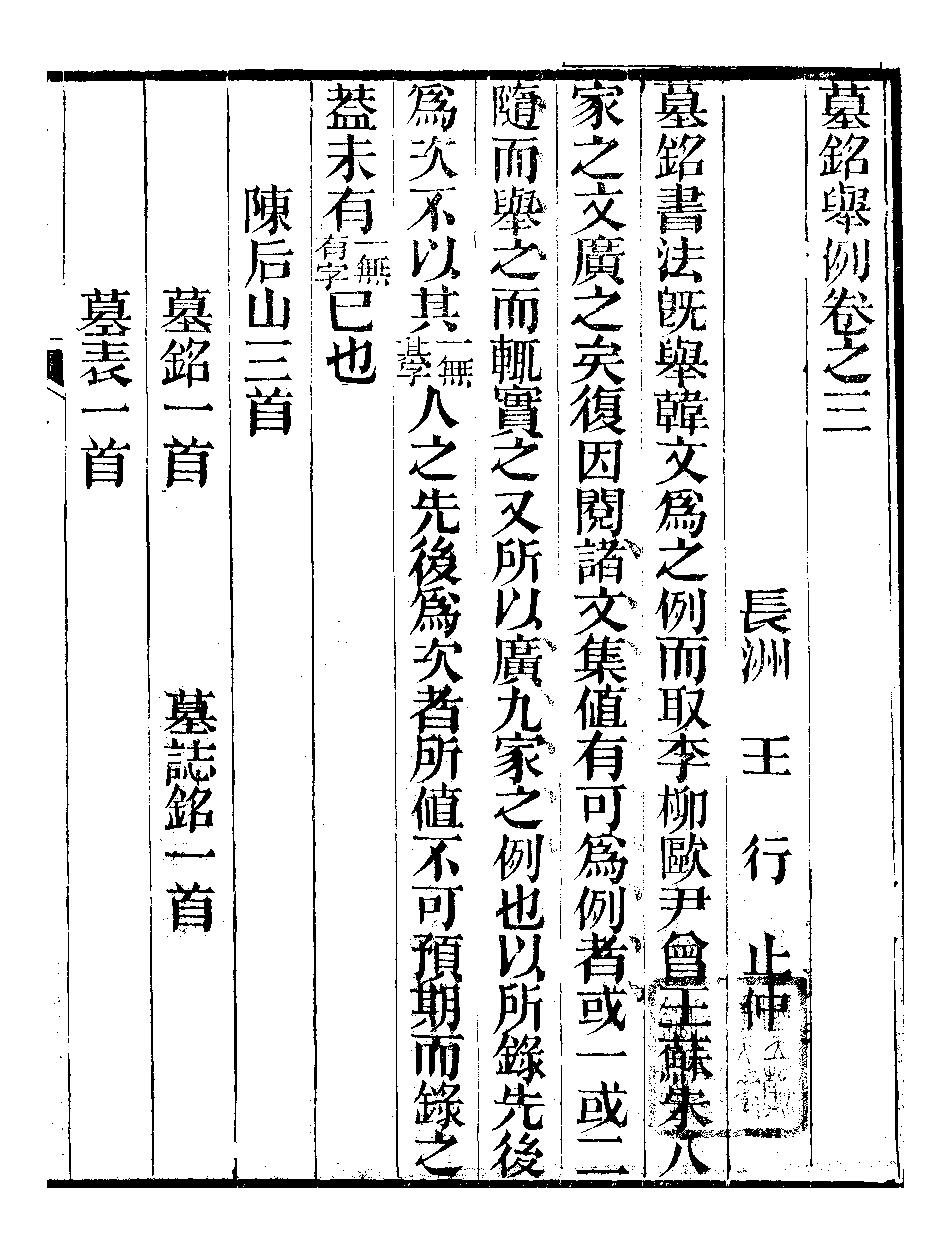 墓銘舉例卷之三
長洲 王 行 止仲
墓銘書法旣舉韓文爲之例而取李柳歐尹曾王蘇朱八
家之文廣之矣復因閱諸文集値有可爲例者或一或二
隨而舉之而輒實之又所以廣九家之例也以所錄先後
爲次不以其一無其字人之先後爲次者所値不可預期而錄之
葢未有一無有字已也
陳后山三首
墓銘一首 墓誌銘一首
墓表一首